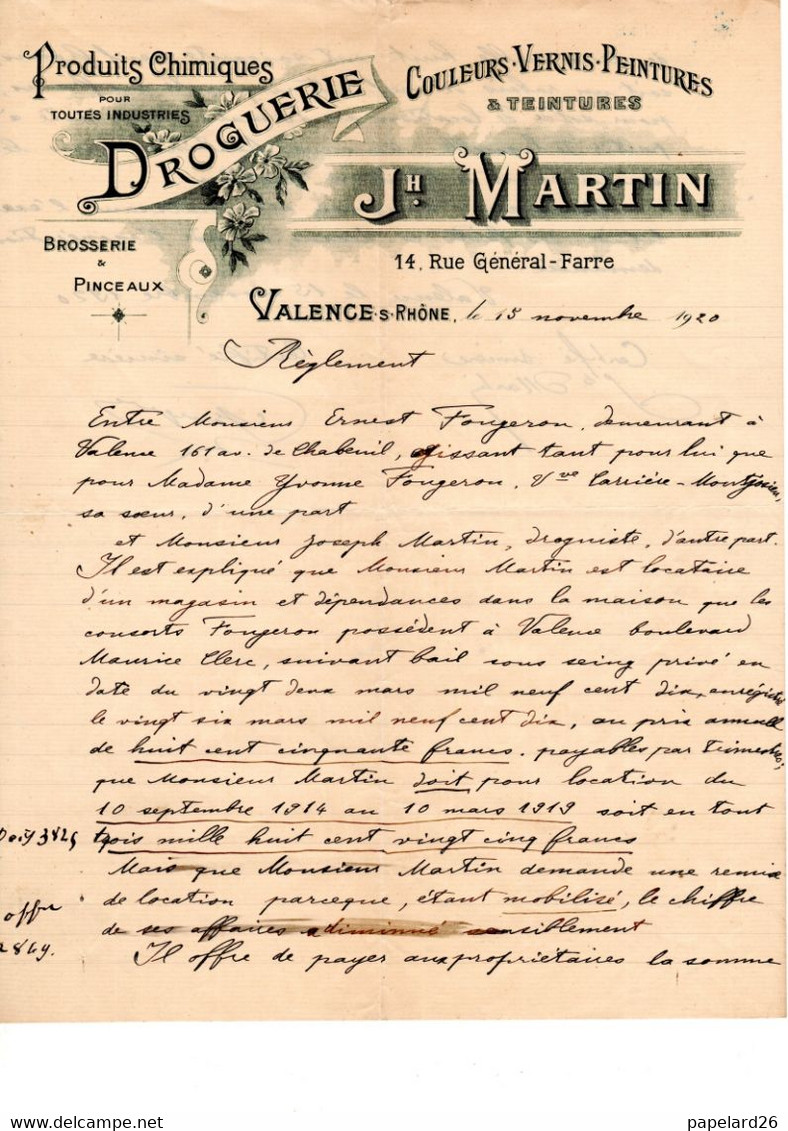 Produits Chimiques
POUR
TOUTES INDUSTRIES
DROGUERIE
COULEURS·VERNIS·PEINTURES
& TEINTURES
JH. MARTIN
BROSSERIE
&
PINCEAUX
14, Rue Général-Farre
VALENCE·S·RHÔNE, le 15 novembre 1920
Règlement
Entre Monsieur Ernest Fougeron, demeurant à
Valence 161 av. de Chabeuil, agissant tant pour lui que
pour Madame Yvonne Fougeron, Vve Carrière-Montjosieu,
sa sœur, d'une part
et Monsieur Joseph Martin, droguiste, d'autre part.
Il est expliqué que Monsieur Martin est locataire
d'un magasin et dépendances dans la maison que les
consorts Fougeron possèdent à Valence boulevard
Maurice Clerc, suivant bail sous seing privé en
date du vingt deux mars mil neuf cent dix, enrégistré
le vingt six mars mil neuf cent dix, au prix annuel
de huit cent cinquante francs. payables par trimestres;
que Monsieur Martin doit pour location du
10 septembre 1914 au 10 mars 1919 soit en tout
Doit 3825 trois mille huit cent vingt cinq francs
Mais que Monsieur Martin demande une remise
de location parceque, étant mobilisé, le chiffre
offre
de ses affaires a diminué sensiblement
2869.
Il offre de payer aux propriétaires la somme
papelard26